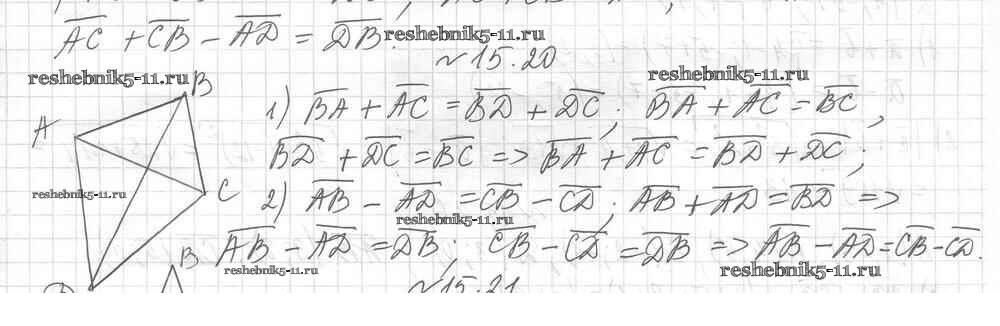 AC + CB − AD = DB. reshebnik5-11.ru
№15.20
reshebnik5-11.ru reshebnik5-11.ru
B
A
1) BA + AC = BD + DC; BA + AC = BC,
BD + DC = BC => BA + AC = BD + DC;
reshebnik5-11.ru
C
2) AB − AD = CB − CD; AB + AD = BD =>
reshebnik5-11.ru
AB − AD = DB; CB − CD = DB => AB − AD = CB − CD.
B
reshebnik5-11.ru reshebnik5-11.ru
№15.21